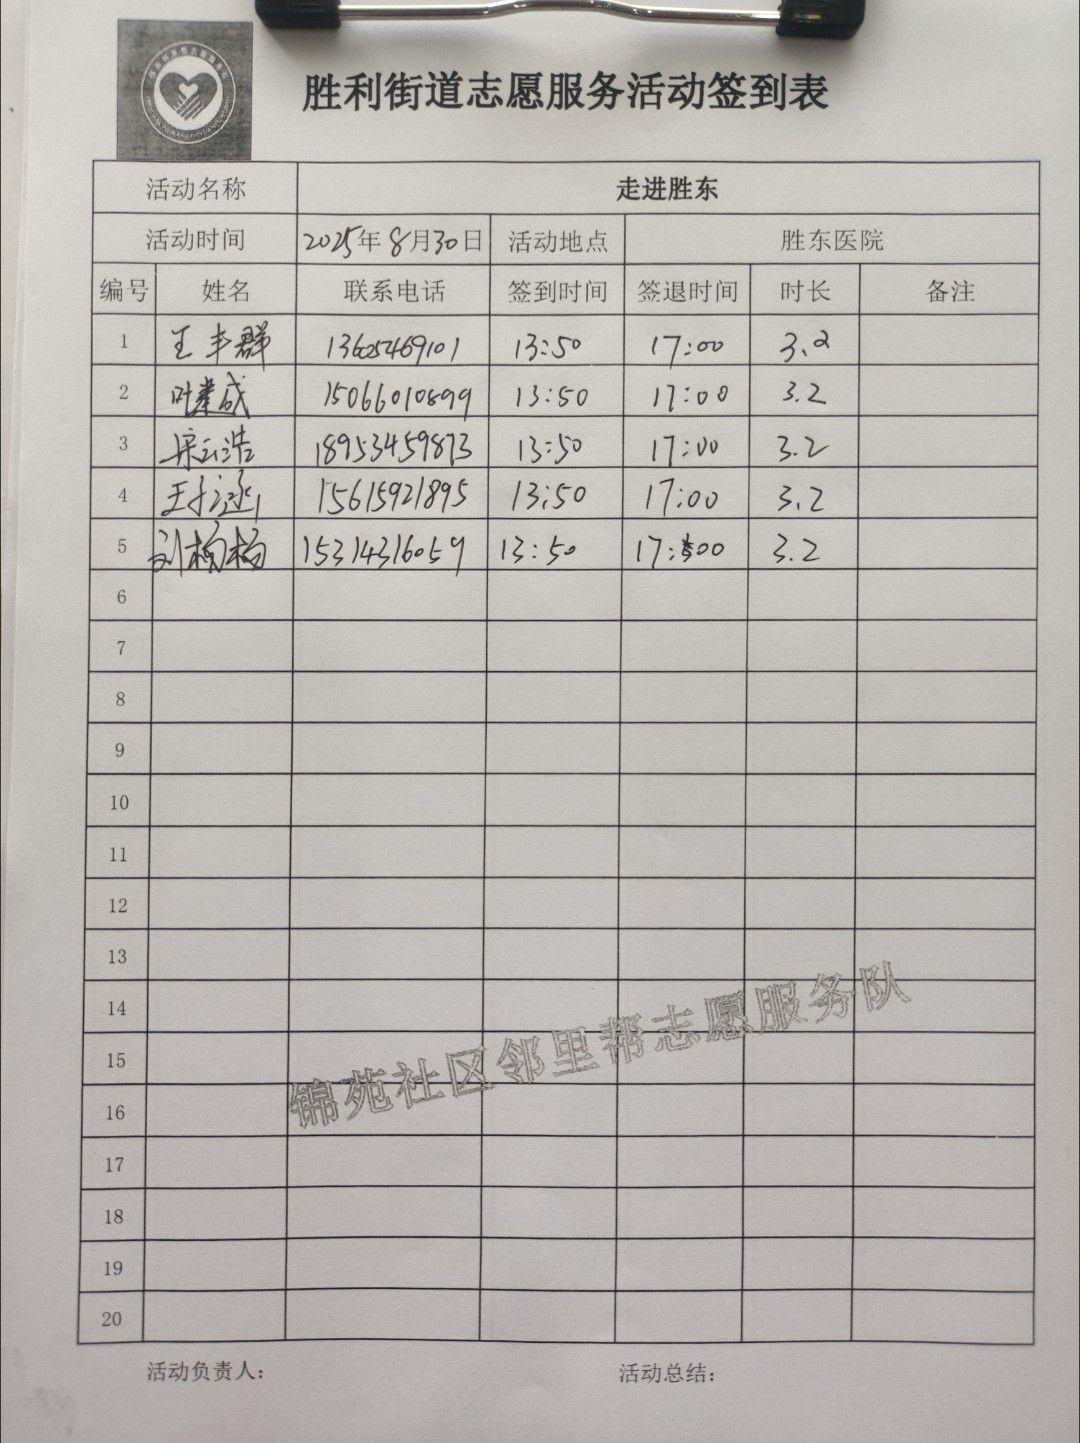 胜利街道志愿服务活动签到表
活动名称 走进胜东
活动时间 2025年8月30日 活动地点 胜东医院
编号 姓名 联系电话 签到时间 签退时间 时长 备注
1 王丰群 13605469101 13:50 17:00 3.2
2 叶建成 15066010899 13:50 17:00 3.2
3 宋云浩 18953459873 13:50 17:00 3.2
4 王子涵 15615921895 13:50 17:00 3.2
5 刘杨杨 15314316059 13:50 17:00 3.2
6
7
8
9
10
11
12
13
14
15
16
17
18
19
20
锦苑社区邻里帮志愿服务队
活动负责人： 活动总结：